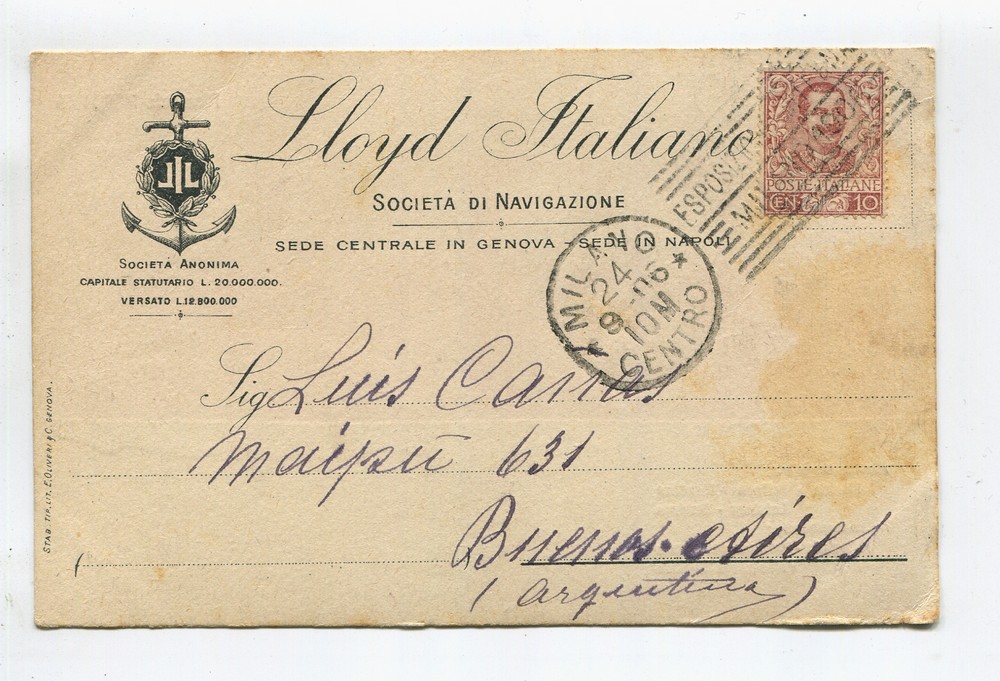 Lloyd Italiano
SOCIETÀ DI NAVIGAZIONE
SEDE CENTRALE IN GENOVA – SEDE IN NAPOLI
LIL
SOCIETÀ ANONIMA
CAPITALE STATUTARIO L. 20.000.000.
VERSATO L.12.800.000
POSTE ITALIANE
CENT 10
MILANO
24
9 - 06
10M
* CENTRO *
Sig Luis
Maipú 631
Buenos Aires
(Argentina)
STAB. TIP. LIT. E. OLIVERI & C. GENOVA.